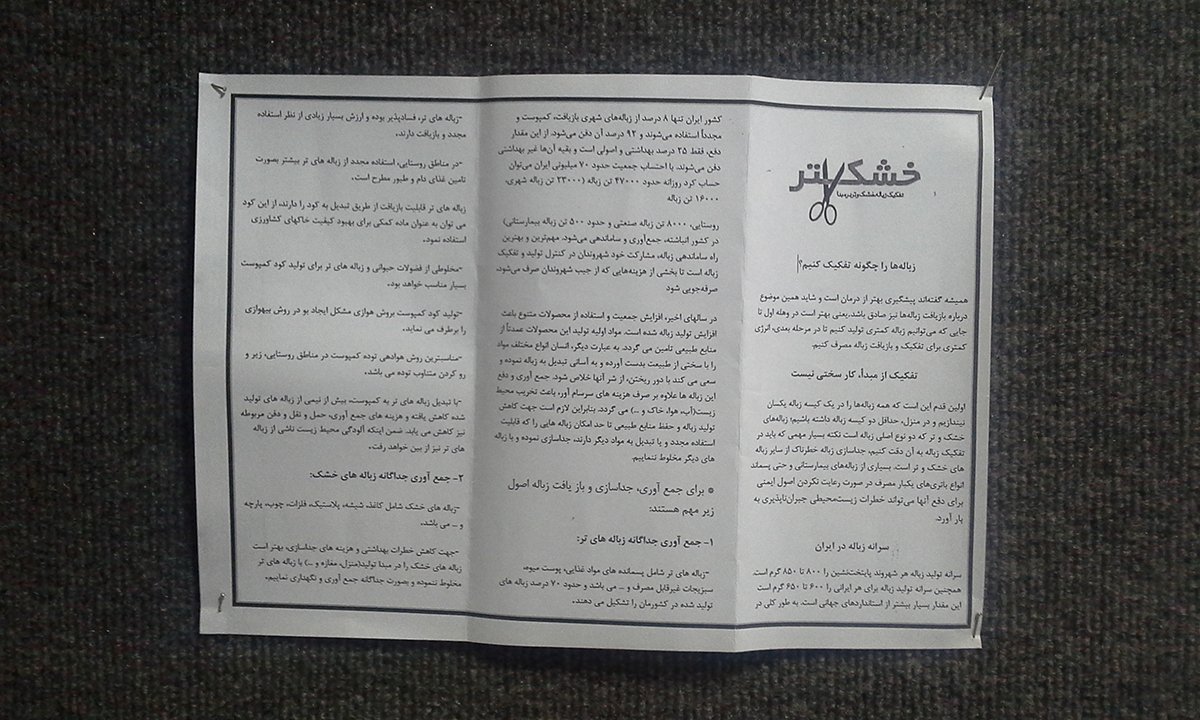 خشک تر
تفکیک زباله خشک و تر در مبدا
زباله‌ها را چگونه تفکیک کنیم؟
همیشه گفته‌اند پیشگیری بهتر از درمان است و شاید همین موضوع
درباره بازیافت زباله‌ها نیز صادق باشد.یعنی بهتر است در وهله اول تا
جایی که می‌توانیم زباله کمتری تولید کنیم تا در مرحله بعدی، انرژی
کمتری برای تفکیک و بازیافت زباله مصرف کنیم.
تفکیک از مبدأ، کار سختی نیست
اولین قدم این است که همه زباله‌ها را در یک کیسه زباله یکسان
نیندازیم و در منزل، حداقل دو کیسه زباله داشته باشیم؛ زباله‌های
خشک و تر که دو نوع اصلی زباله است نکته بسیار مهمی که باید در
تفکیک زباله به آن دقت کنیم، جداسازی زباله خطرناک از سایر زباله
های خشک و تر است. بسیاری از زباله‌های بیمارستانی و حتی پسماند
انواع باتری‌های یکبار مصرف در صورت رعایت نکردن اصول ایمنی
برای دفع آنها می‌تواند خطرات زیست‌محیطی جبران‌ناپذیری به
بار آورد.
سرانه زباله در ایران
سرانه تولید زباله هر شهروند پایتخت‌نشین را ۸۰۰ تا ۸۵۰ گرم است.
همچنین سرانه تولید زباله برای هر ایرانی را ۶۰۰ تا ۶۵۰ گرم است
این مقدار بسیار بیشتر از استانداردهای جهانی است. به طور کلی در
کشور ایران تنها ۸ درصد از زباله‌های شهری بازیافت، کمپوست و
مجدداً استفاده می‌شوند و ۹۲ درصد آن دفن می‌شود. از این مقدار
دفع، فقط ۲۵ درصد بهداشتی و اصولی است و بقیه آن‌ها غیر بهداشتی
دفن می‌شوند. با احتساب جمعیت حدود ۷۰ میلیونی ایران می‌توان
حساب کرد روزانه حدود ۴۷۰۰۰ تن زباله (۲۳۰۰۰ تن زباله شهری،
۱۶۰۰۰ تن زباله
روستایی، ۸۰۰۰ تن زباله صنعتی و حدود ۵۰۰ تن زباله بیمارستانی)
در کشور انباشته، جمع‌آوری و ساماندهی می‌شود. مهم‌ترین و بهترین
راه ساماندهی زباله، مشارکت خود شهروندان در کنترل تولید و تفکیک
زباله است تا بخشی از هزینه‌هایی که از جیب شهروندان صرف می‌شود،
صرفه‌جویی شود
در سالهای اخیر، افزایش جمعیت و استفاده از محصولات متنوع باعث
افزایش تولید زباله شده است. مواد اولیه تولید این محصولات عمدتاً از
منابع طبیعی تامین می گردد. به عبارت دیگر، انسان انواع مختلف مواد
را با سختی از طبیعت بدست آورده و به آسانی تبدیل به زباله نموده و
سعی می کند با دور ریختن، از شر آنها خلاص شود. جمع آوری و دفع
این زباله ها علاوه بر صرف هزینه های سرسام آور، باعث تخریب محیط
زیست(آب، هوا، خاک و ...) می گردد. بنابراین لازم است جهت کاهش
تولید زباله و حفظ منابع طبیعی تا حد امکان زباله هایی را که قابلیت
استفاده مجدد و یا تبدیل به مواد دیگر دارند، جداسازی نموده و با زباله
های دیگر مخلوط ننماییم.
* برای جمع آوری، جداسازی و باز یافت زباله اصول
زیر مهم هستند:
۱- جمع آوری جداگانه زباله های تر:
-زباله های تر شامل پسمانده های مواد غذایی، پوست میوه،
سبزیجات غیرقابل مصرف و ... می باشد و حدود ۷۰ درصد زباله های
تولید شده در کشورمان را تشکیل می دهند.
-زباله های تر، فسادپذیر بوده و ارزش بسیار زیادی از نظر استفاده
مجدد و بازیافت دارند.
-در مناطق روستایی، استفاده مجدد از زباله های تر بیشتر بصورت
تامین غذای دام و طیور مطرح است.
زباله های تر قابلیت بازیافت از طریق تبدیل به کود را دارند، از این کود
می توان به عنوان ماده کمکی برای بهبود کیفیت خاکهای کشاورزی
استفاده نمود.
-مخلوطی از فضولات حیوانی و زباله های تر برای تولید کود کمپوست
بسیار مناسب خواهد بود.
-تولید کود کمپوست بروش هوازی مشکل ایجاد بو در روش بیهوازی
را برطرف می نماید.
-مناسبترین روش هوادهی توده کمپوست در مناطق روستایی، زیر و
رو کردن متناوب توده می باشد.
-با تبدیل زباله های تر به کمپوست، بیش از نیمی از زباله های تولید
شده کاهش یافته و هزینه های جمع آوری، حمل و نقل و دفن مربوطه
نیز کاهش می یابد. ضمن اینکه آلودگی محیط زیست ناشی از زباله
های تر نیز از بین خواهد رفت.
۲- جمع آوری جداگانه زباله های خشک:
-زباله های خشک شامل کاغذ، شیشه، پلاستیک، فلزات، چوب، پارچه
و ... می باشد.
-جهت کاهش خطرات بهداشتی و هزینه های جداسازی، بهتر است
زباله های خشک را در مبدا تولید(منزل، مغازه و ...) با زباله های تر
مخلوط ننموده و بصورت جداگانه جمع آوری و نگهداری نماییم.